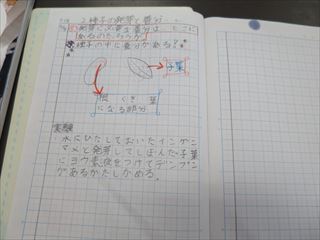 2 種子の発芽と養分
問 発芽に必要な養分は、どこに
あるのだろうか。
種子の中に養分がある?
子葉
根 くき 葉
になる部分
実験
・水にひたしておいたインゲン
マメと発芽してしぼんだ子葉
にヨウ素液をつけてデンプン
があるかたしかめる。